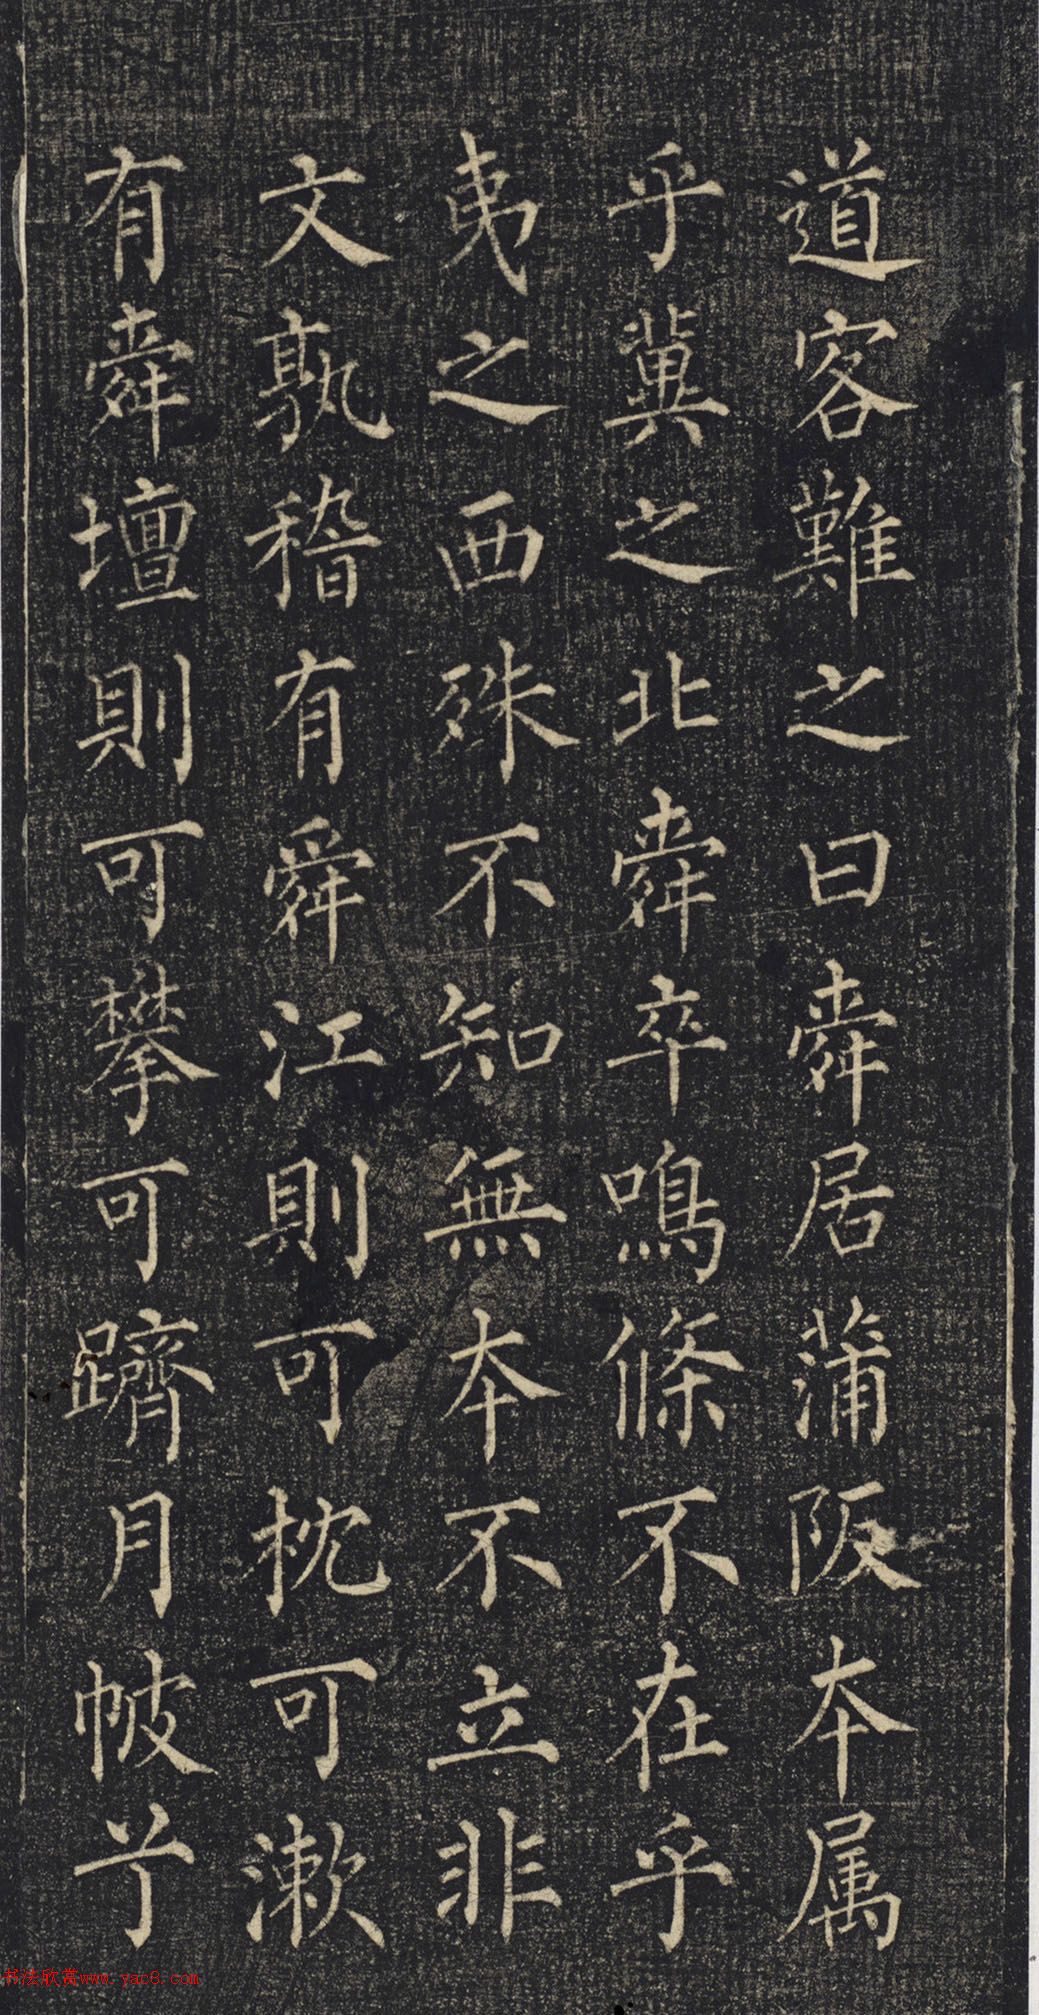 道客難之曰舜居蒲阪本属
乎冀之北舜卒鳴條不在乎
夷之西殊不知無本不立非
文孰稽有舜江則可枕可漱
有舜壇則可攀可躋月帔兮
书法欣赏www.yac8.com